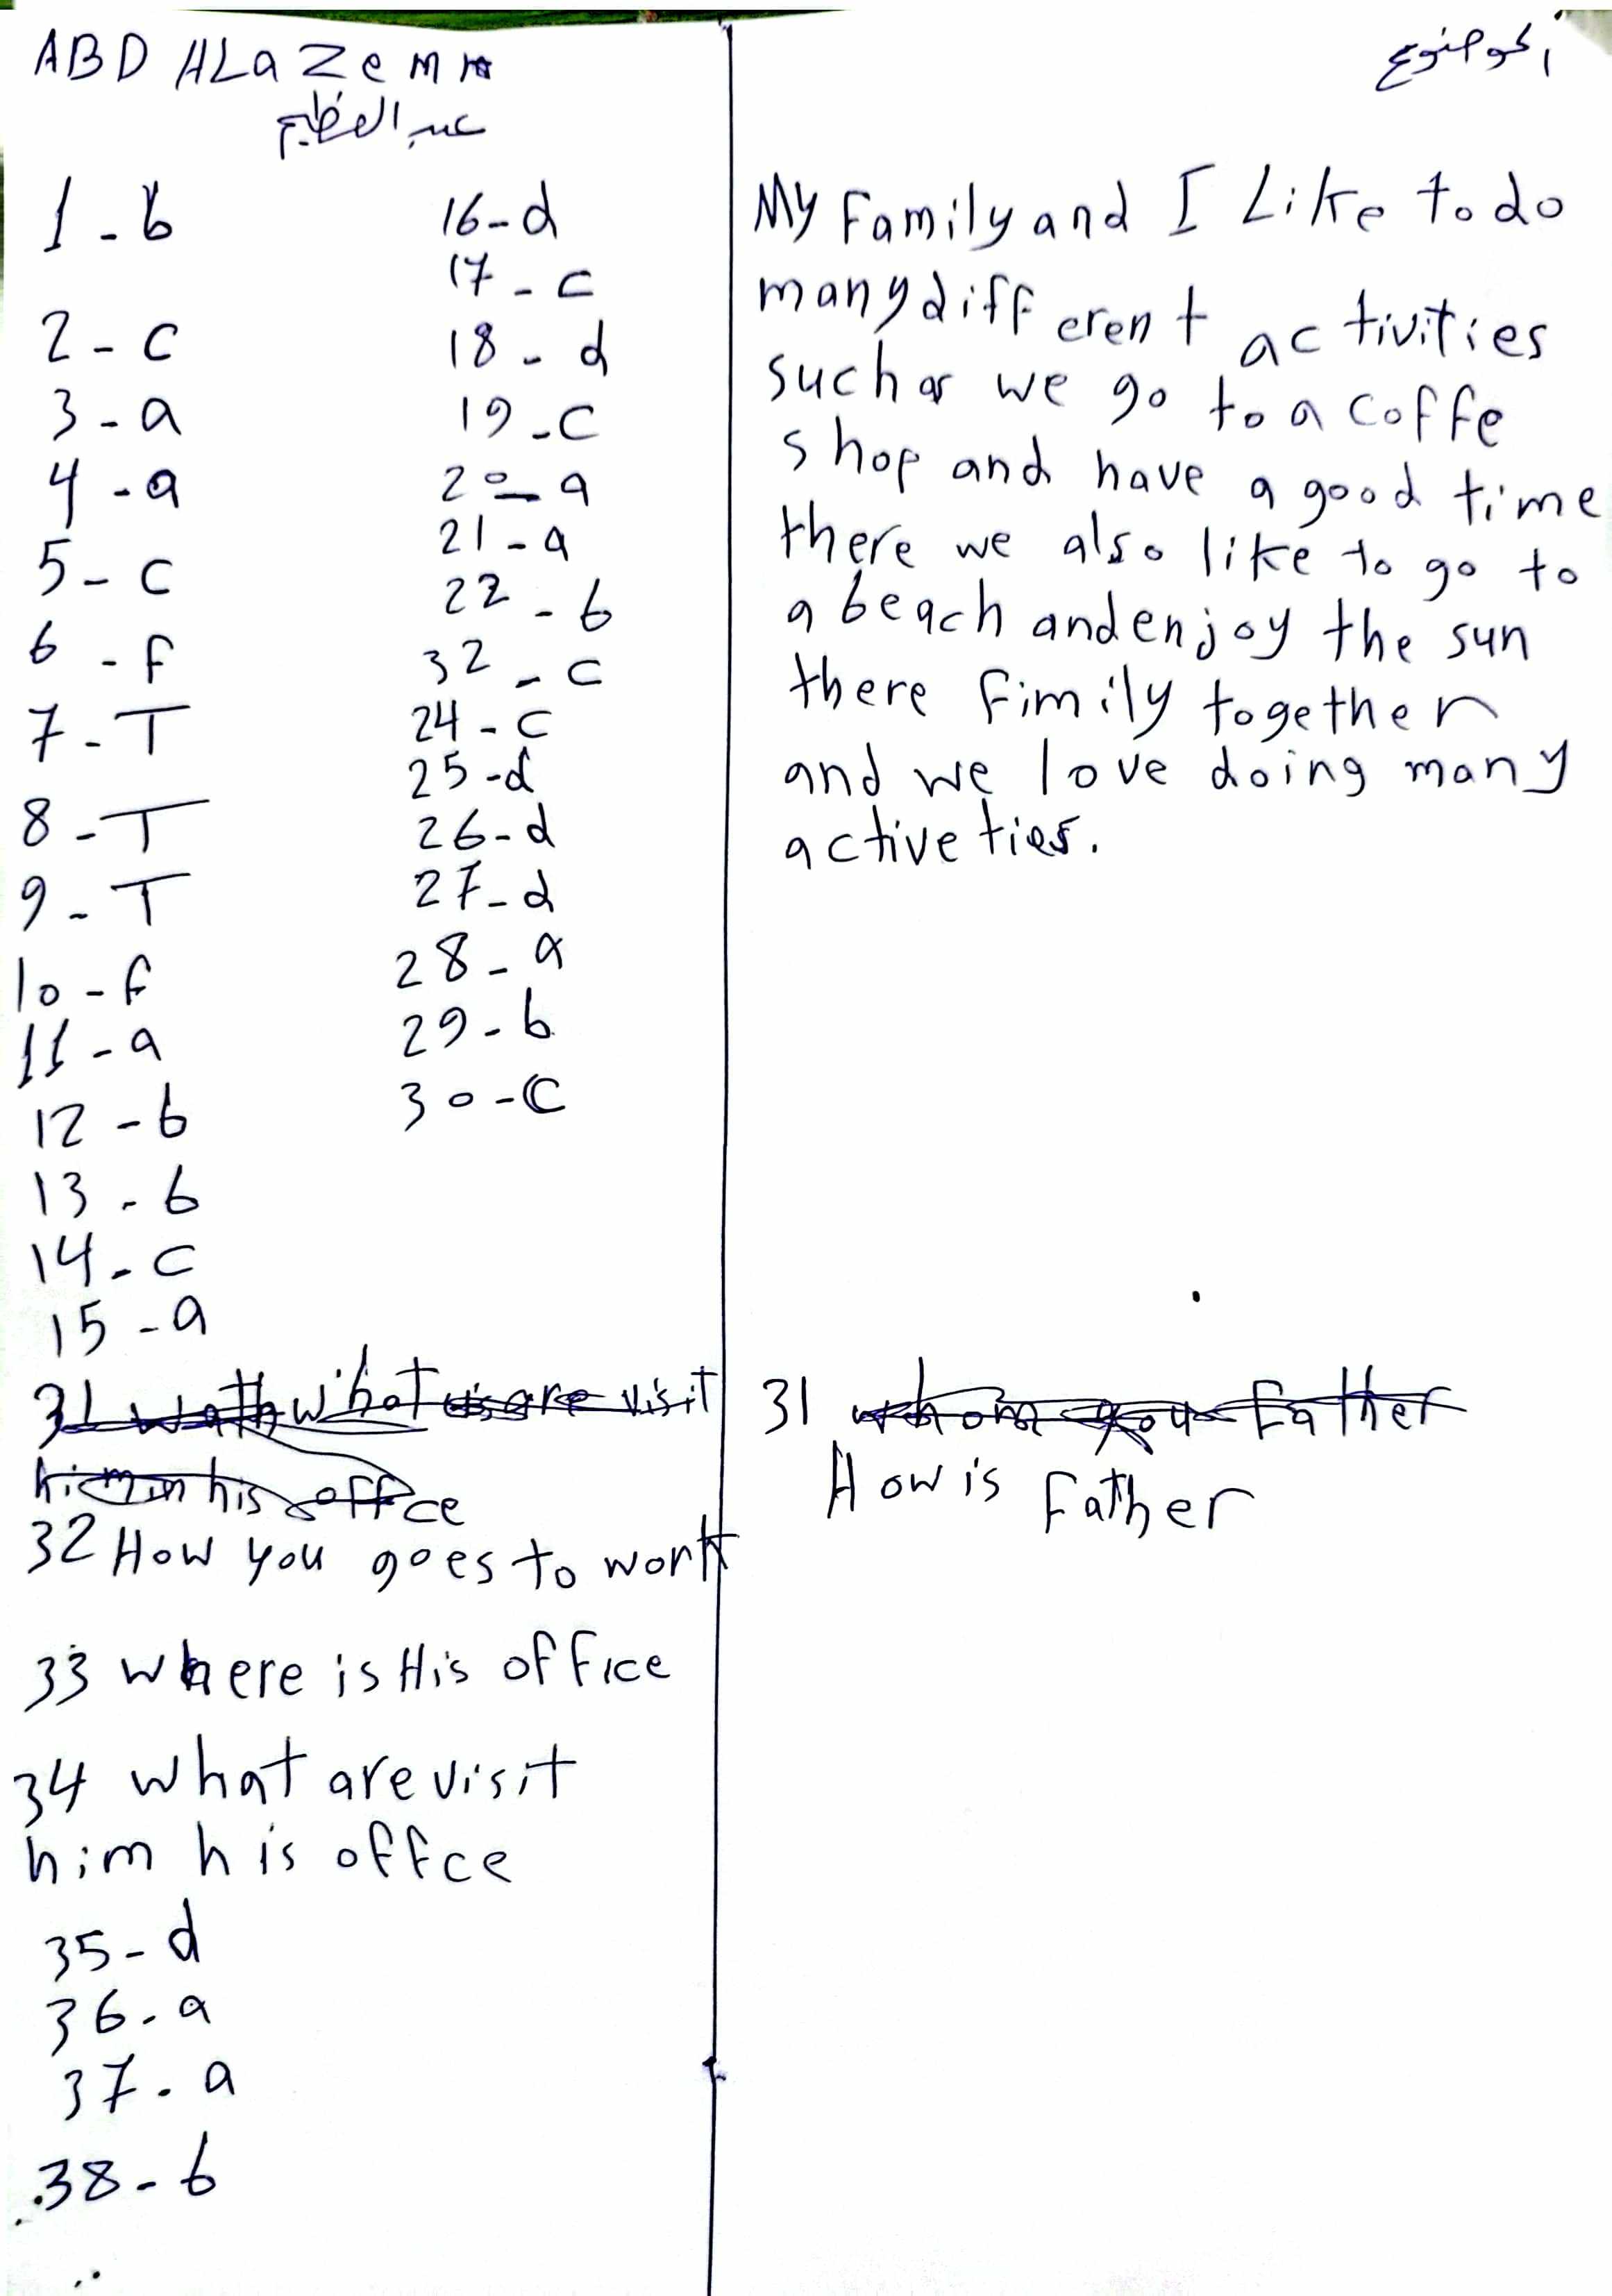 ABD ALazem
عبد العظيم
1 - b
2 - c
3 - a
4 - a
5 - c
6 - f
7 - T
8 - T
9 - T
10 - f
11 - a
12 - b
13 - b
14 - c
15 - a
16 - d
17 - c
18 - d
19 - c
20 - a
21 - a
22 - b
32 - c
24 - c
25 - d
26 - d
27 - d
28 - a
29 - b
30 - c
31 what are visit
him in his offce
32 How you goes to work
33 where is His office
34 what are visit
him his offce
35 - d
36 - a
37 - a
38 - b
الموضوع
My Family and I Like to do
many different activities
such as we go to a coffe
shop and have a good time
there we also like to go to
a beach and enjoy the sun
there fimily together
and we love doing many
active ties.
31 you Father
How is Father